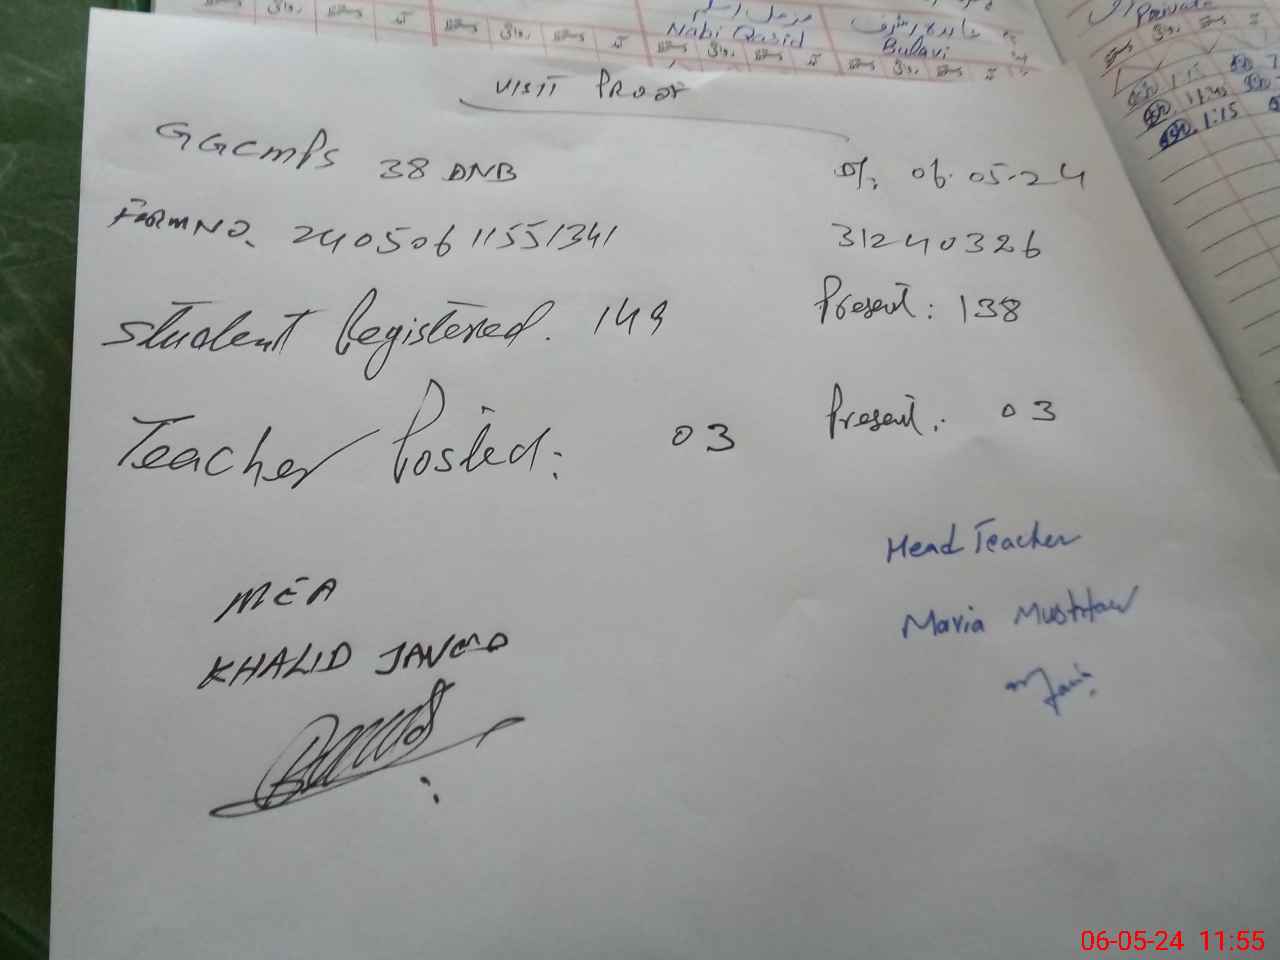 Nabi Qasid Bulavi
Private
1:15
11:45
1:15
VISIT PROOF
GGCMPS 38 DNB D/. 06.05.24
FORM NO. 24050611551341 31240326
Student Registered. 149 Present: 138
Teacher Posted: 03 Present: 03
Head Teacher
MEA
Maria Mushtaw
KHALID JAVED
06-05-24 11:55